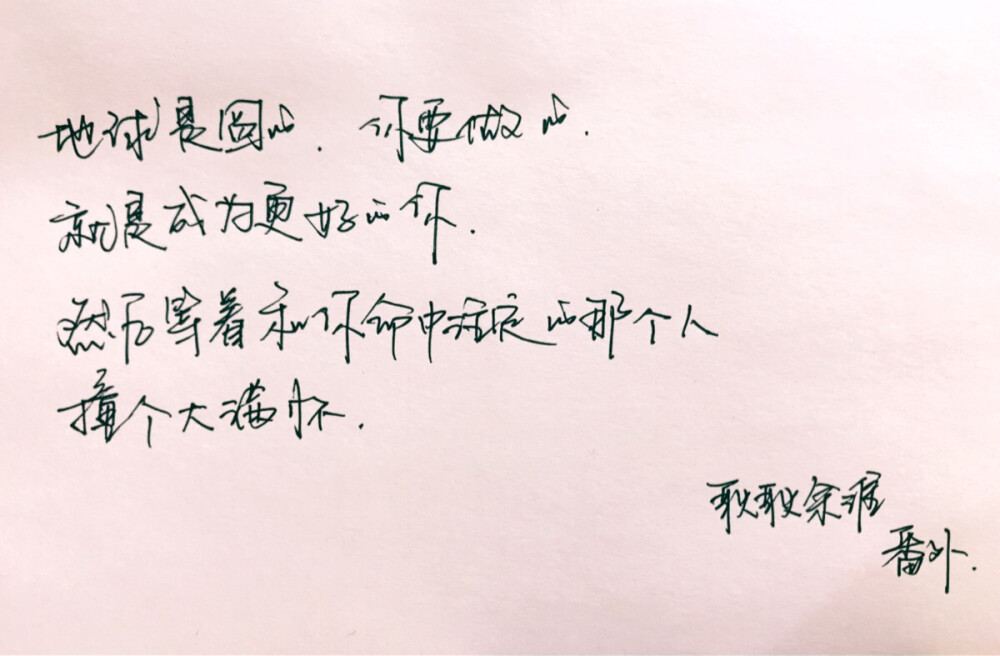 地球是圆的.你要做的.
就是成为更好的你.
然后等着和你命中注定的那个人
撞个大满怀.
耿耿余淮
番外.